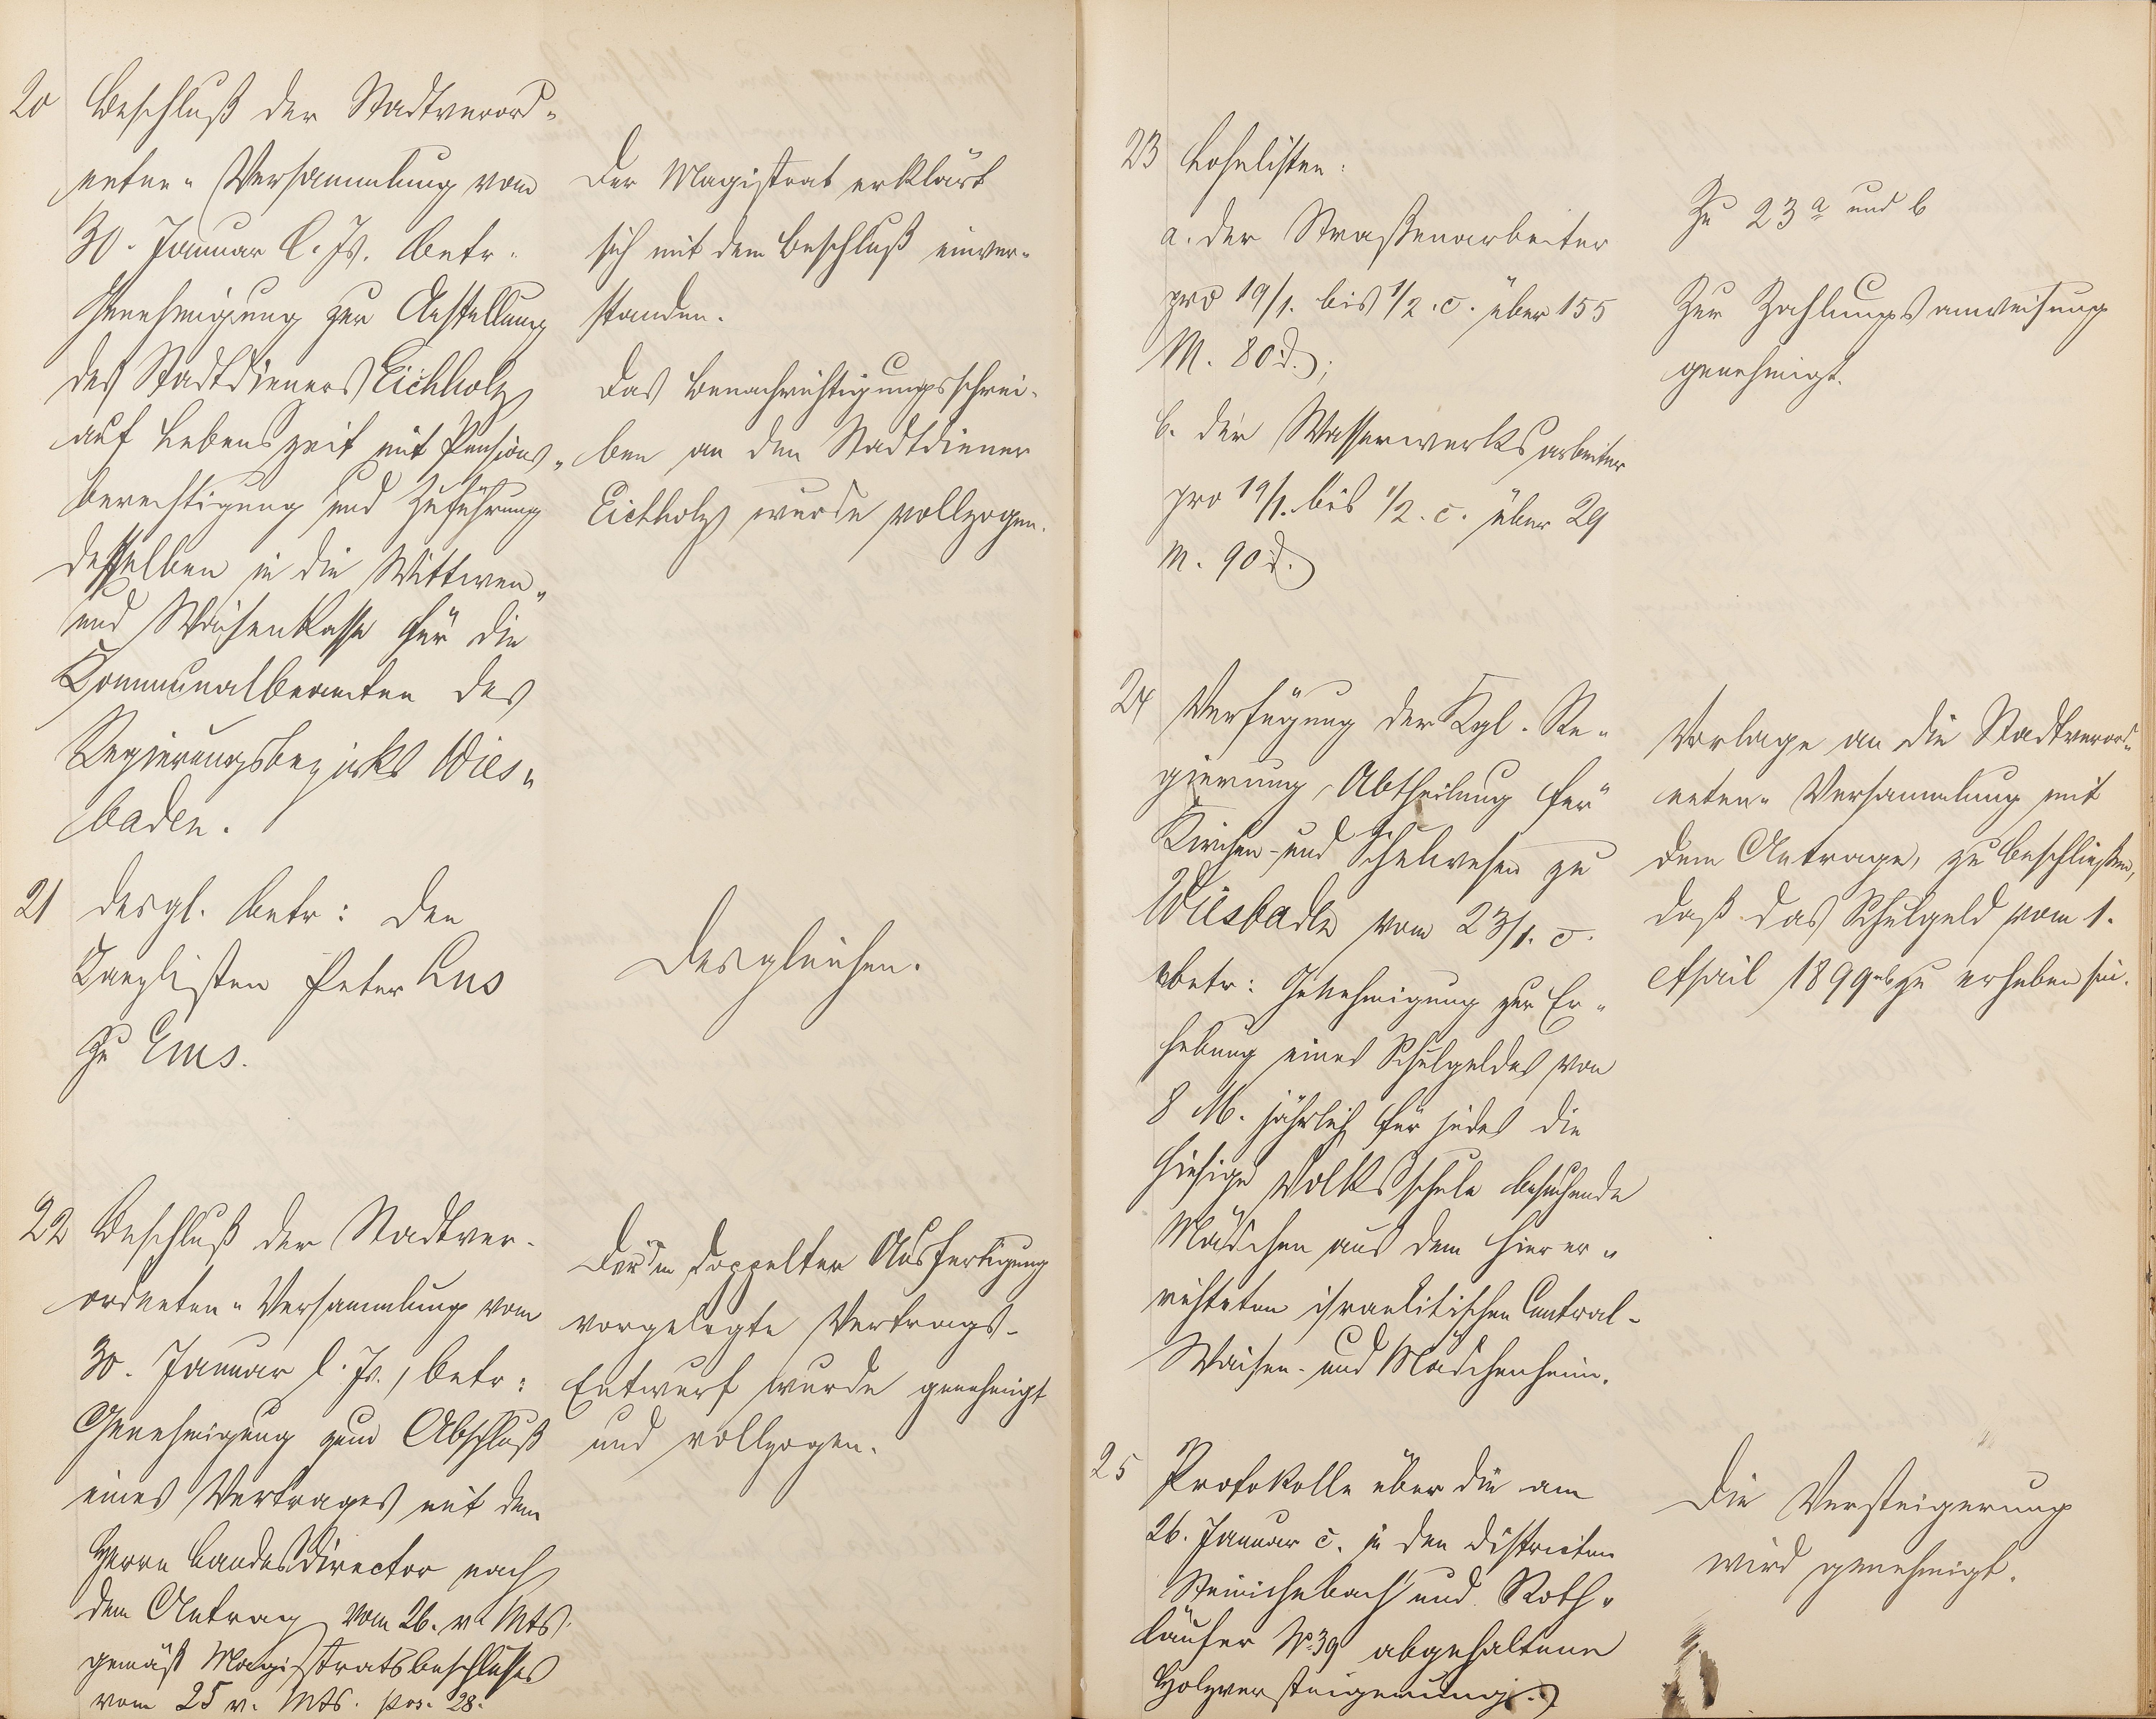 20 Beschluß der Stadtverord-
neten-Versammlung vom
30. Januar l. Js. betr.
Genehmigung zur Anstellung
des Stadtdieners Eichholz
auf Lebenszeit mit Pensions-
berechtigung und Zuführung
desselben in die Wittwen-
und Waisenkasse für die
Kommunalbeamten des
Regierungsbezirks Wies-
baden.
Der Magistrat erklärt
sich mit dem Beschluß einver-
standen.
Das Benachrichtigungsschrei-
ben an den Stadtdiener
Eichholz wurde vollzogen.
21 desgl. betr: den
Kanzlisten Peter Lus
zu Ems.
Desgleichen.
22 Beschluß der Stadtver-
ordneten-Versammlung vom
30. Januar l. Js., betr:
Genehmigung zum Abschluß
eines Vertrages mit dem
Herrn Landesdirector nach
dem Antrag vom 26. v. Mts.
gemäß Magistratsbeschlusses
vom 25 v. Mts. pos. 28.
Der in doppelter Ausfertigung
vorgelegte Vertrags-
Entwurf wurde genehmigt
und vollzogen.
23 Lohnlisten:
a. der Straßenarbeiter
pro 19/1. bis 1/2. c. über 155
M. 80 d.;
b. der Wasserwerksarbeiter
pro 19/1. bis 1/2. c. über 29
M. 90 d.
Zu 23 a und b
Zur Zahlungsanweisung
genehmigt.
24 Verfügung der Kgl. Re-
gierung, Abtheilung für
Kirchen- und Schulwesen zu
Wiesbaden vom 23/1. c.
betr: Genehmigung zur Er-
hebung eines Schulgeldes von
8 M. jährlich für jedes die
hiesige Volksschule besuchende
Mädchen aus dem hier er-
richteten israelitischen Central-
Waisen- und Mädchenheim.
Vorlage an die Stadtverord-
neten-Versammlung mit
dem Antrage, zu beschließen,
daß das Schulgeld vom 1.
April 1899 ab zu erheben sei.
25 Protokolle über die am
26. Januar c. in den Distrikten
und Roth-
läufer No. 39 abgehaltene
Holzversteigerung.
Die Versteigerung
wird genehmigt.